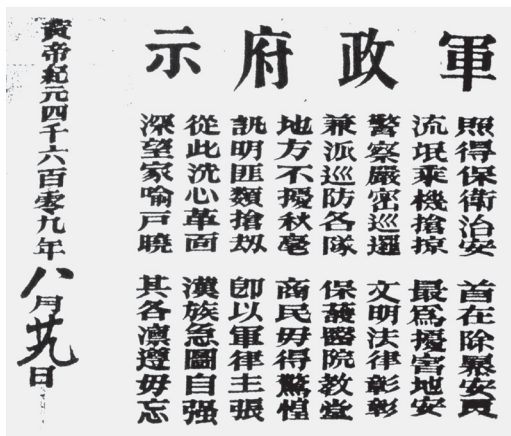 軍政府示
照得保衛治安　首在除暴安良
流氓乘機搶掠　最爲擾害地安
警察嚴密巡邏　文明法律彰彰
兼派巡防各隊　保護醫院教堂
地方不擾秋毫　商民毋得驚惶
訊明匪類搶刼　卽以軍律主張
從此洗心革面　漢族急圖自强
深望家喻戶曉　其各凛遵毋忘
黃帝紀元四千六百零九年八月廿九日